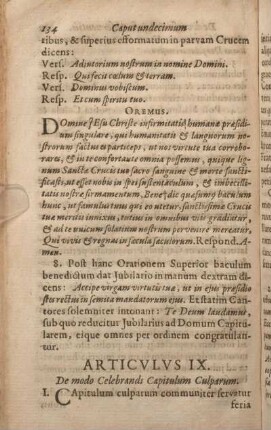 134 Caput undecimum
ribus, & superius efformatum in parvam Crucem
dicens:
Vers. Adjutorium nostrum in nomine Domini.
Resp. Qui fecit cœlum & terram.
Vers. Dominus vobiscum.
Resp. Et cum spiritu tuo.
OREMUS.
Domine Jesu Christe infirmitatis humanæ præsidi-
um singulare, qui humanitatis & languorum no-
strorum factus es particeps, ut nos virtute tua corrobo-
rares, & in te confortante omnia possemus, quique lig-
num Sanctæ Crucis tuo sacro sanguine & morte sancti-
ficasti, ut esset nobis in spei sustentaculum, & imbecilli-
tatis nostræ firmamentum. Bene✠dic quæsumus baculum
hunc, ut famulus tuus qui eo nititur, sanctissimæ Crucis
tuæ meritis innixus, totius in omnibus viis gradiatur,
& ad te nuicum solatium nostrum pervenire mereatur,
Qui vivis & regnas in sæcula sæculorum. Respond. A-
men.
8. Post hanc Orationem Superior baculum
benedictum dat Jubilario in manum dextram di-
cens: Accipe virgam virtutis tuæ, ut in ejus præsidio
stes rectus in semita mandatorum ejus. Et statim Can-
tores solemniter intonant: Te Deum laudamus,
sub quo reducitur Jubilarius ad Domum Capitu-
larem, eique omnes per ordinem congratulan-
tur.
ARTICVLVS IX.
De modo Celebrandi Capitulum Culparum.
1. Capitulum culparum communiter servatur
feria